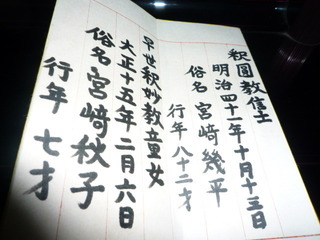 釈圓教信士
明治四十一年十月十三日
俗名 宮﨑幾平
行年 八十二才
早世釈妙教童女
大正十五年二月六日
俗名宮﨑秋子
行年 七才